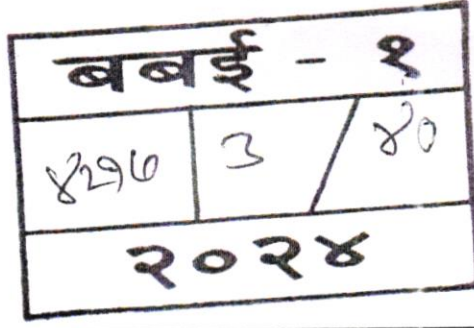 बबई - १
४२१७ ३ / ४०
२०२४